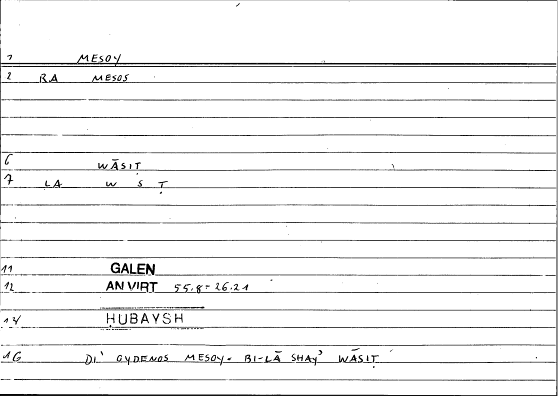 1 MESOY
2 RA MESOS
6 WĀSIṬ
7 LA W S Ṭ
11 GALEN
12 AN VIRT 55.8 = 26.21
14 ḤUBAYSH
16 DI' OYDENOS MESOY = BI-LĀ SHAYʾ WĀSIṬ